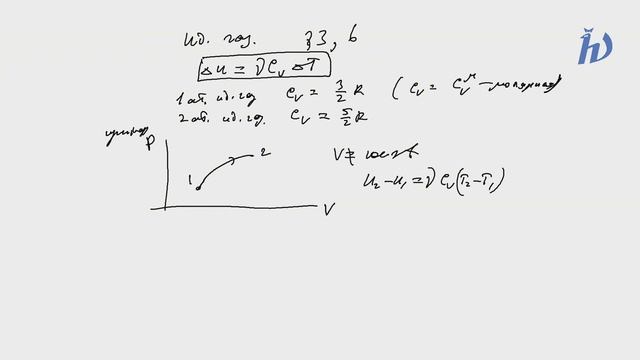 ид. газ. ЗЗ, б
Δu = ν C_V ΔT
1 ат. ид. газ C_V = 3/2 R ( C_V = C_V^μ - молярная )
2 ат. ид. газ. C_V = 5/2 R
пример
P
1 2
V ≠ const
u₂ - u₁ = ν C_V (T₂ - T₁)
V